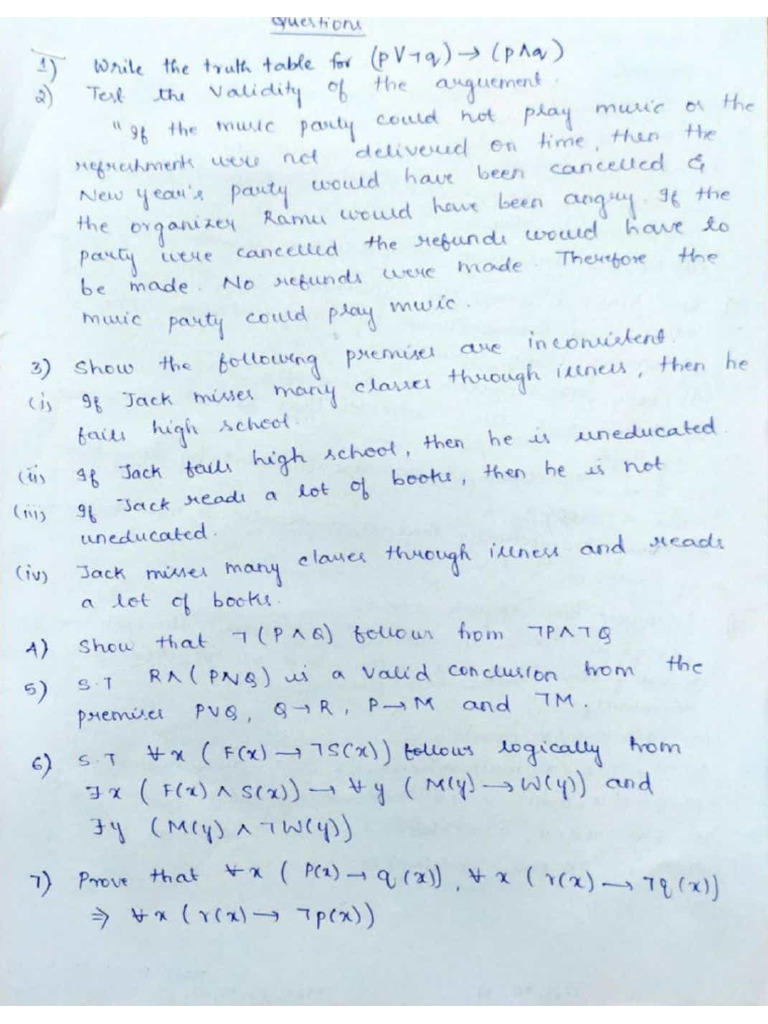 Questions
1) Write the truth table for (p∨¬q) → (p∧q)
2) Test the validity of the arguement.
"If the music party could not play music or the
refreshments were not delivered on time, then the
New year's party would have been cancelled &
the organizer Ramu would have been angry. If the
party were cancelled the refunds would have to
be made. No refunds were made. Therefore the
music party could play music.
3) Show the following premises are inconsistent.
(i) If Jack misses many classes through illness, then he
fails high school.
(ii) If Jack fails high school, then he is uneducated.
(iii) If Jack reads a lot of books, then he is not
uneducated.
(iv) Jack misses many classes through illness and reads
a lot of books.
4) Show that ¬(P∧Q) follows from ¬P∧¬Q
5) S.T R∧(P∨Q) is a valid conclusion from the
premises P∨Q, Q→R, P→M and ¬M.
6) S.T ∀x (F(x) → ¬S(x)) follows logically from
∃x (F(x) ∧ S(x)) → ∀y (M(y) → W(y)) and
∃y (M(y) ∧ ¬W(y))
7) Prove that ∀x (P(x) → q(x)), ∀x (r(x) → ¬q(x))
⇒ ∀x (r(x) → ¬p(x))